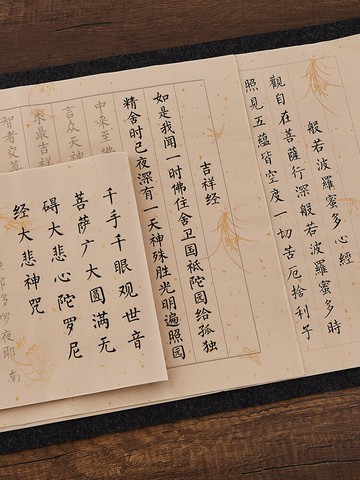 般若波羅蜜多心經
觀自在菩薩行深般若波羅蜜多時
照見五蘊皆空度一切苦厄捨利子
吉祥经
如是我闻一时佛住舍卫国祗陀园给孤独
精舍时已夜深有一天神殊胜光明遍照园
中来至佛
言众天神
求最吉祥
智者交
千手千眼观世音
菩萨广大圆满无
碍大悲心陀罗尼
经大悲神咒
哆啰夜耶 南